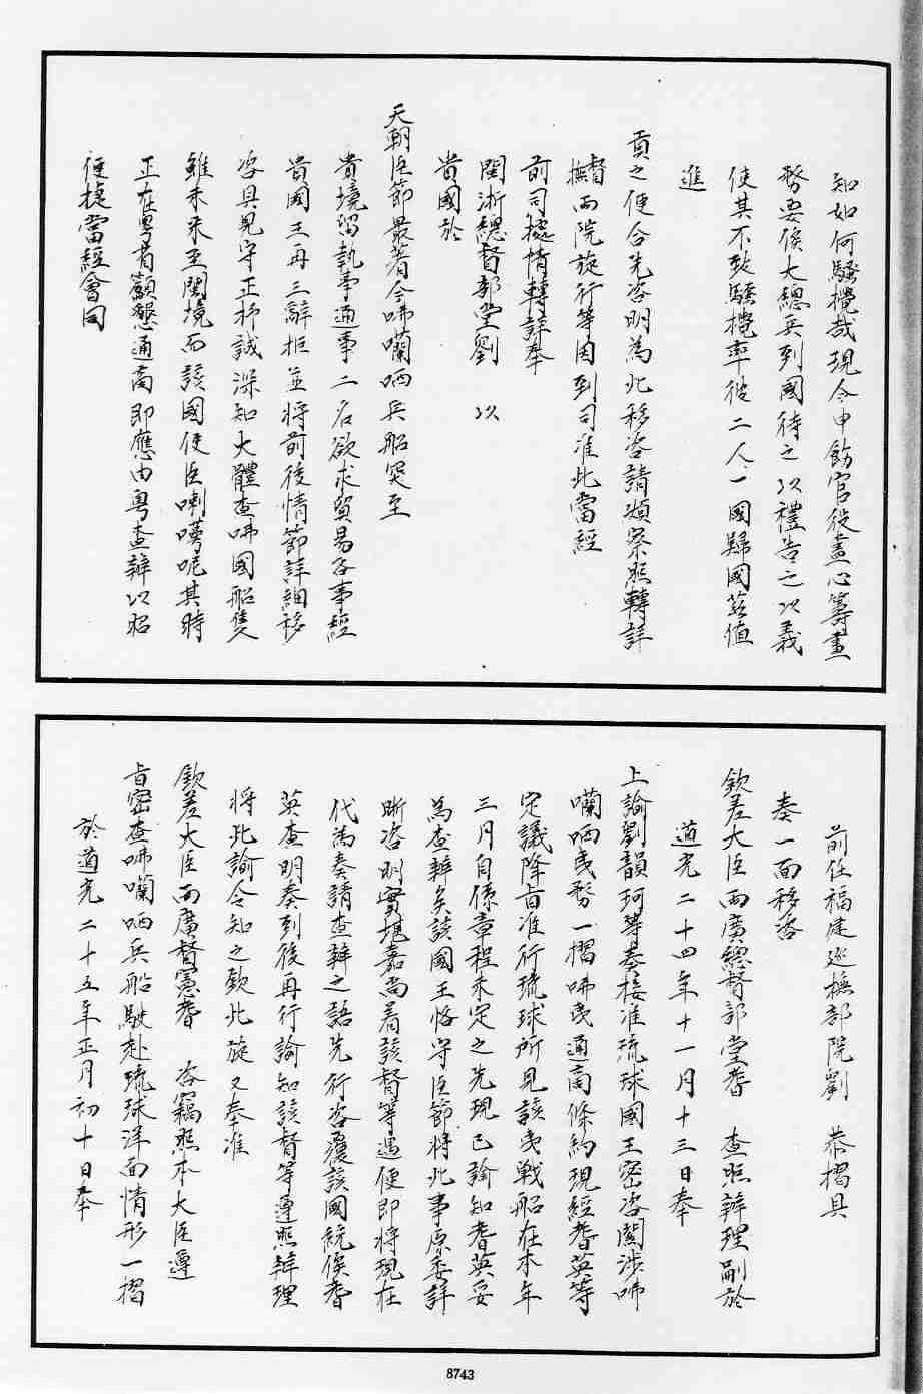 知如何騷擾哉現今申飭官役盡心籌畫
務要俟大總兵到國待之以禮告之以義
使其不致騷擾率彼二人一國歸國茲值
進
貢之便合先咨明為此移咨請煩察照轉詳
督撫兩院旋行等因到司准此當經
前司據情轉詳奉
閩浙總督部堂劉 以
貴國於
天朝臣節最著今咈囒哂兵船突至
貴境留執事通事二名欲求貿易各事經
貴國王再三辭拒並將前後情節詳細移
咨具見守正抒誠深知大體查咈國船隻
雖未來至閩境而該國使臣喇嘮呢其時
正在粵省籲懇通商即應由粵查辦以昭
徑捷當經會同
前任福建巡撫部院劉 恭摺具
奏一面移咨
欽差大臣兩廣總督部堂耆 查照辦理嗣於
道光二十四年十一月十三日奉
上諭劉韻珂等奏接准琉球國王密咨關涉咈
囒哂夷務一摺咈夷通商條約現經耆英等
定議降旨准行琉球所見該夷戰船在本年
三月自係章程未定之先現已諭知耆英妥
為查辦矣該國王恪守臣節將此事原委詳
晰咨明實堪嘉尚着該督等遇便即將現在
代為奏請查辦之語先行咨覆該國統俟耆
英查明奏到後再行諭知該督等遵照辦理
將此諭令知之欽此旋又奉准
欽差大臣兩廣督憲耆 咨竊照本大臣遵
旨密查咈囒哂兵船駛赴琉球洋面情形一摺
於道光二十五年正月初十日奉
8743